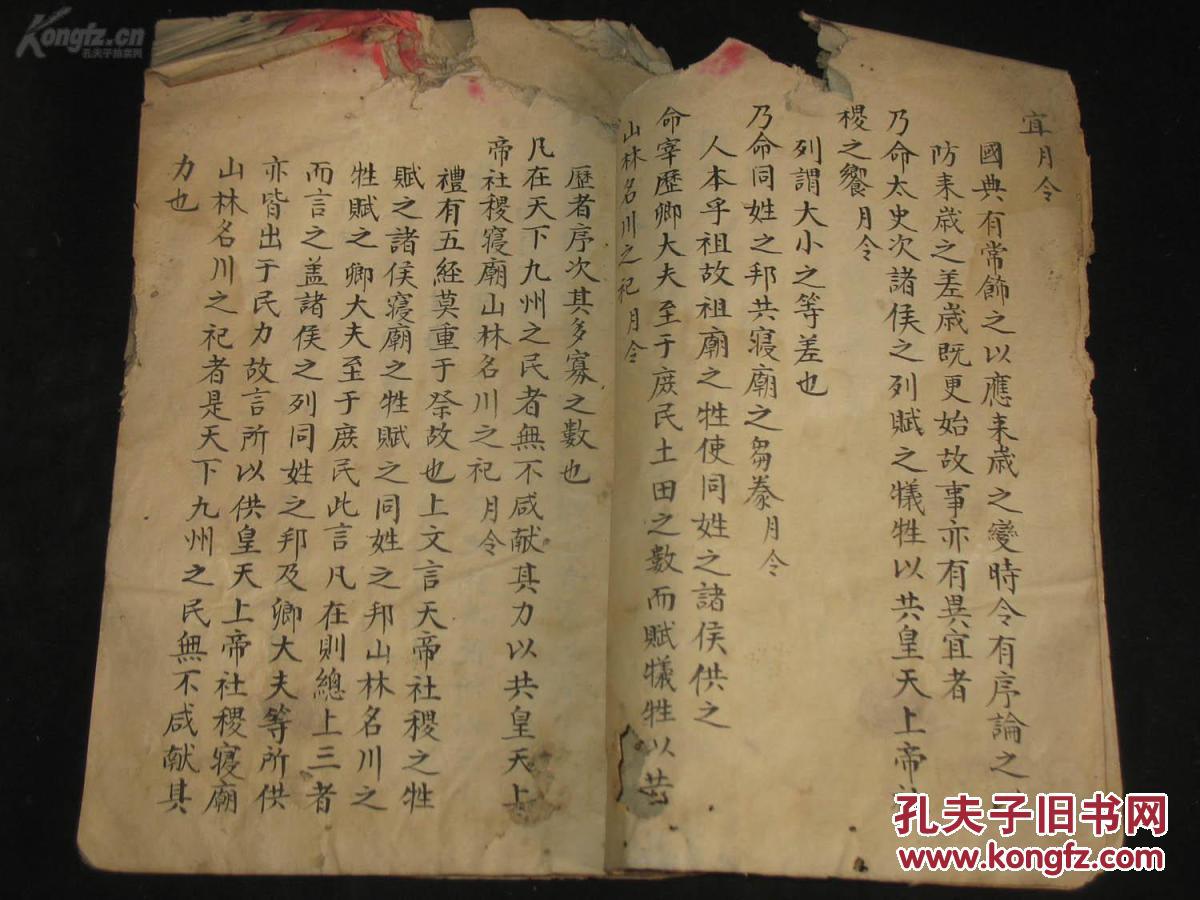 宜月令
國典有常飾之以應来歳之變時令有序論之以
防来歳之差歳既更始故事亦有異宜者
乃命太史次諸侯之列賦之犧牲以共皇天上帝社
稷之饗月令
列謂大小之等差也
乃命同姓之邦共寝廟之芻豢月令
人本乎祖故祖廟之牲使同姓之諸侯供之
命宰歷卿大夫至于庻民土田之數而賦犠牲以共
山林名川之祀月令
歷者序次其多寡之數也
凡在天下九州之民者無不咸献其力以共皇天上
帝社稷寝廟山林名川之祀月令
禮有五経莫重于祭故也上文言天帝社稷之牲
賦之諸侯寝廟之牲賦之同姓之邦山林名川之
牲賦之卿大夫至于庻民此言凡在則總上三者
而言之盖諸侯之列同姓之邦及卿大夫等所供
亦皆出于民力故言所以供皇天上帝社稷寝廟
山林名川之祀者是天下九州之民無不咸献其
力也
Kongfz.cn
孔夫子拍卖网
孔夫子旧书网
www.kongfz.com